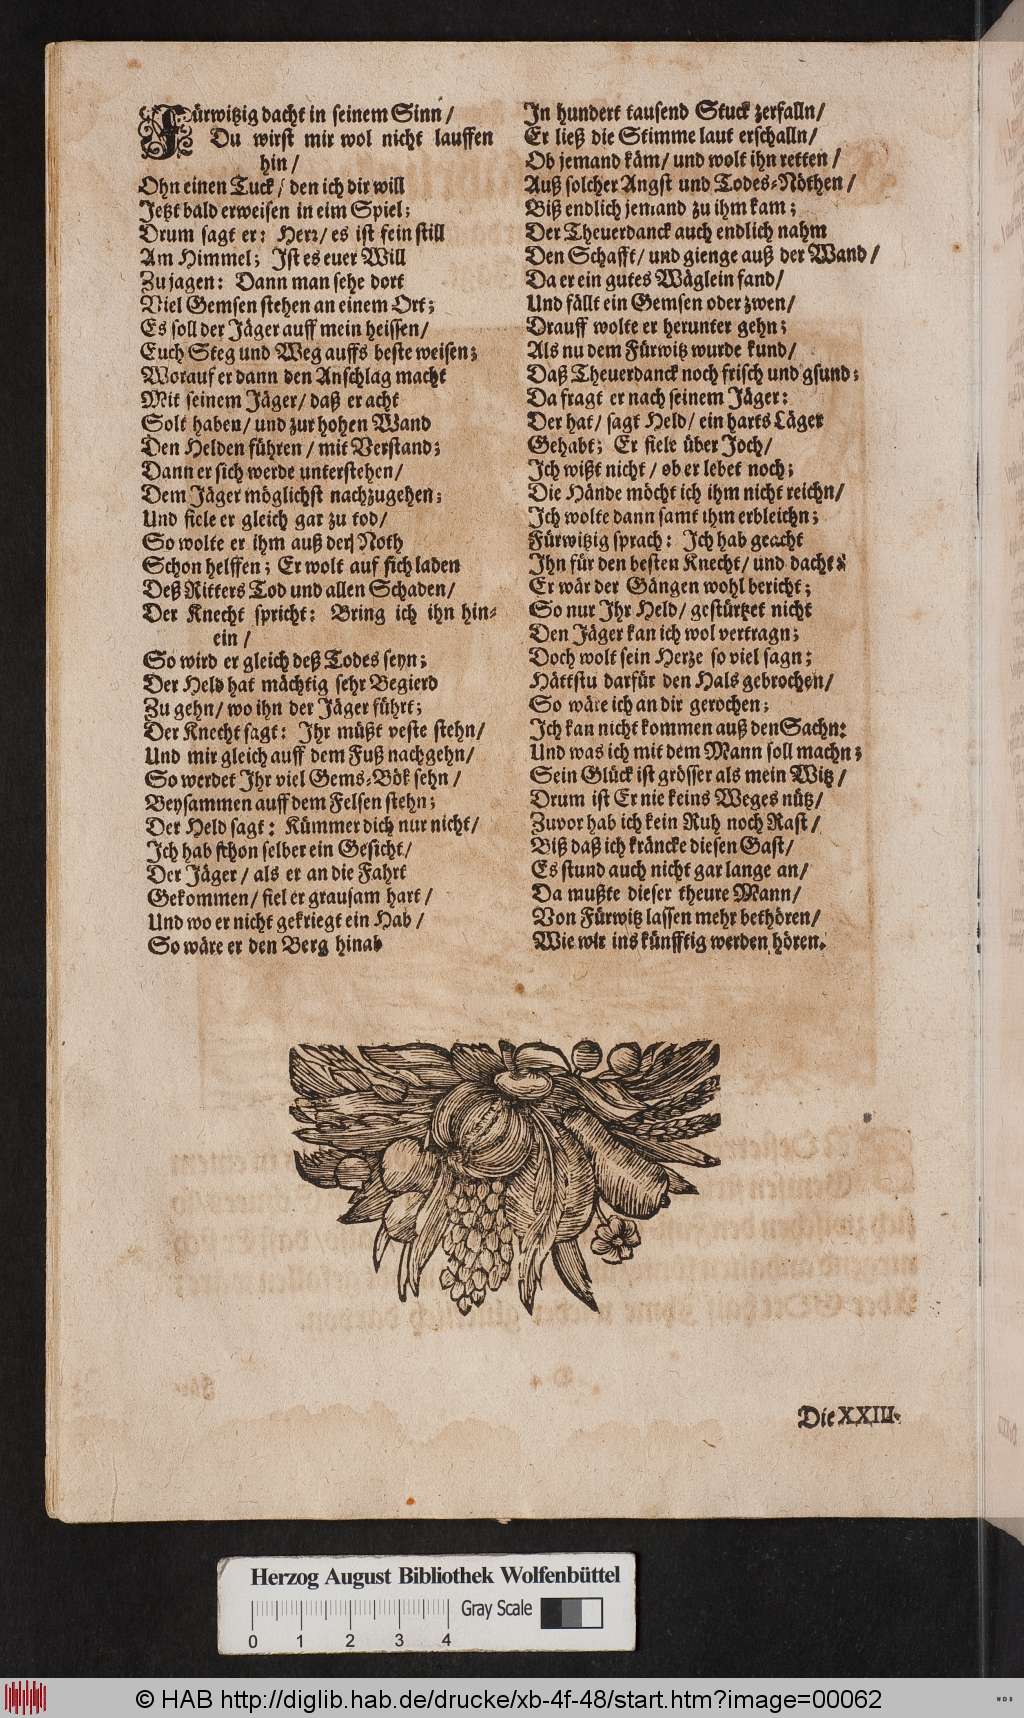 Fürwitzig dacht in seinem Sinn /
Du wirst mir wol nicht lauffen
hin /
Ohn einen Tuck / den ich dir will
Jetzt bald erweisen in eim Spiel;
Drum sagt er: Herz / es ist fein still
Am Himmel; Ist es euer Will
Zu jagen: Dann man sehe dort
Viel Gemsen stehen an einem Ort;
Es soll der Jäger auff mein heissen /
Euch Steg und Weg auffs beste weisen;
Worauf er dann den Anschlag macht
Mit seinem Jäger / daß er acht
Solt haben / und zur hohen Wand
Den Helden führen / mit Verstand;
Dann er sich werde unterstehen /
Dem Jäger möglichst nachzugehen;
Und fiele er gleich gar zu tod /
So wolte er ihm auß der Noth
Schon helffen; Er wolt auf sich laden
Deß Ritters Tod und allen Schaden /
Der Knecht spricht: Bring ich ihn hin-
ein /
So wird er gleich deß Todes seyn;
Der Held hat mächtig sehr Begierd
Zu gehn / wo ihn der Jäger führt;
Der Knecht sagt: Ihr müßt veste stehn /
Und mir gleich auff dem Fuß nachgehn /
So werdet Ihr viel Gems-Bök sehn /
Beysammen auff dem Felsen stehn;
Der Held sagt: Kümmer dich nur nicht /
Ich hab schon selber ein Gesicht /
Der Jäger / als er an die Fahrt
Gekommen / fiel er grausam hart /
Und wo er nicht gekriegt ein Hab /
So wäre er den Berg hinab
In hundert tausend Stuck zerfalln /
Er ließ die Stimme laut erschalln /
Ob jemand käm / und wolt ihn retten /
Auß solcher Angst und Todes-Nöthen /
Biß endlich jemand zu ihm kam;
Der Theuerdanck auch endlich nahm
Den Schafft / und gienge auß der Wand /
Da er ein gutes Wäglein fand /
Und fällt ein Gemsen oder zwen /
Drauff wolte er herunter gehn;
Als nu dem Fürwitz wurde kund /
Daß Theuerdanck noch frisch und gsund;
Da fragt er nach seinem Jäger:
Der hat / sagt Held / ein harts Läger
Gehabt; Er fiele über Joch /
Ich wißt nicht / ob er lebet noch;
Die Hände möcht ich ihm nicht reichn /
Ich wolte dann samt ihm erbleichn;
Fürwitzig sprach: Ich hab geacht
Ihn für den besten Knecht / und dacht:
Er wär der Gängen wohl bericht;
So nur Ihr Held / gestürtzet nicht
Den Jäger kan ich wol vertragn;
Doch wolt sein Herze so viel sagn;
Hättstu darfür den Hals gebrochen /
So wäre ich an dir gerochen;
Ich kan nicht kommen auß den Sachn:
Und was ich mit dem Mann soll machn;
Sein Glück ist grösser als mein Witz /
Drum ist Er nie keins Weges nütz /
Zuvor hab ich kein Ruh noch Rast /
Biß daß ich kräncke diesen Gast /
Es stund auch nicht gar lange an /
Da mußte dieser theure Mann /
Von Fürwitz lassen mehr bethören /
Wie wir ins künfftig werden hören.
Die XXIII.
Herzog August Bibliothek Wolfenbüttel
Gray Scale
0 1 2 3 4
© HAB http://diglib.hab.de/drucke/xb-4f-48/start.htm?image=00062